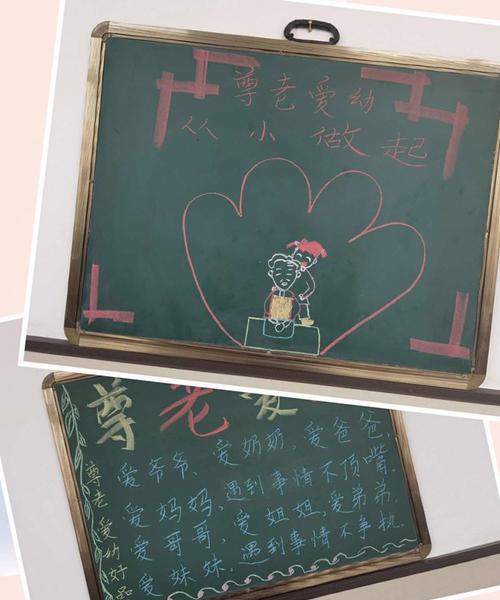 尊老爱幼
从小做起
尊老爱
尊老爱幼好品
爱爷爷、爱奶奶、爱爸爸,
爱妈妈,遇到事情不顶嘴.
爱哥哥,爱姐姐,爱弟弟.
爱妹妹.遇到事情不争执.